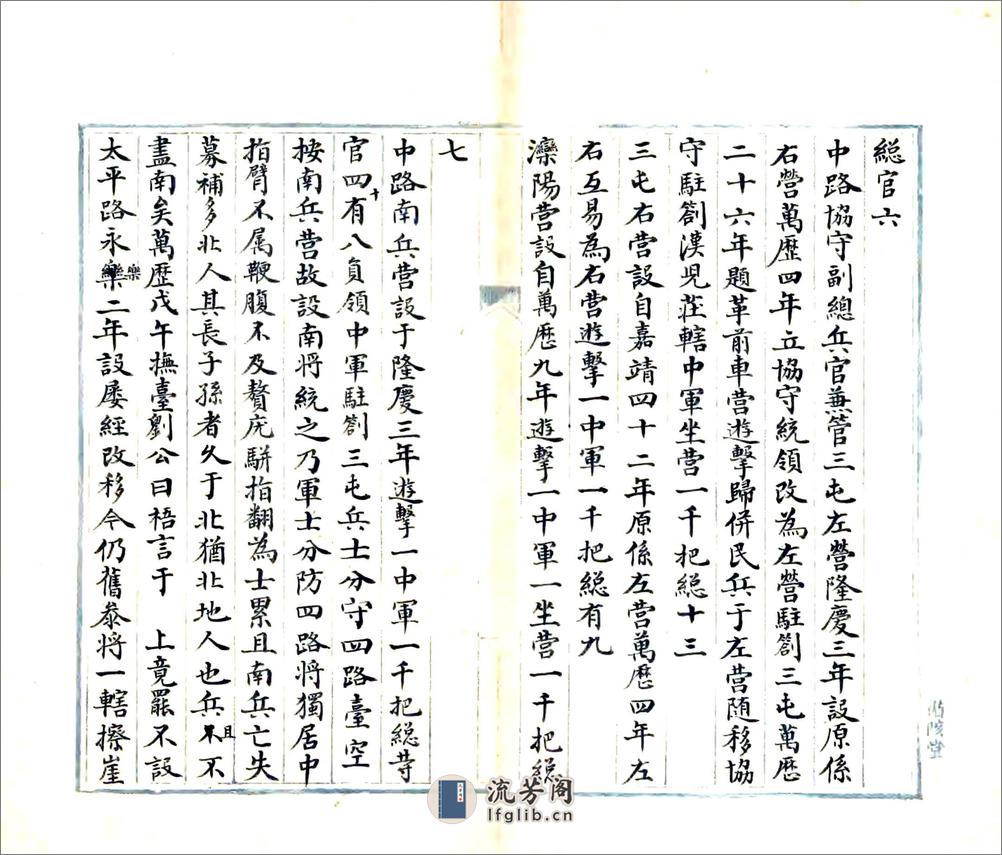 総官六
中路協守副總兵官兼管三屯左營隆慶三年設原係
右營萬歷四年立協守統領改為左營駐劄三屯萬歷
二十六年題革前車營遊擊歸併民兵于左營随移協
守駐劄漢児莊轄中軍坐營一千把総十三
三屯右營設自嘉靖四十二年原係左營萬歷四年左
右互易為右營遊擊一中軍一千把総有九
灤陽營設自萬歷九年遊擊一中軍一坐營一千把総
七
中路南兵營設于隆慶三年遊擊一中軍一千把総等
官四十有八負領中軍駐劄三屯兵士分守四路臺空
按南兵營故設南将統之乃軍士分防四路將獨居中
指臂不属鞭腹不及贅庑駢指翻為士累且南兵亡失
募補多北人其長子孫者久于北猶北地人也兵不且不
盡南矣萬歷戊午撫臺劉公曰梧言于 上竟罷不設
太平路永樂樂二年設屡經改移今仍舊叅将一轄擦崖
流芳阁
lfglib.cn